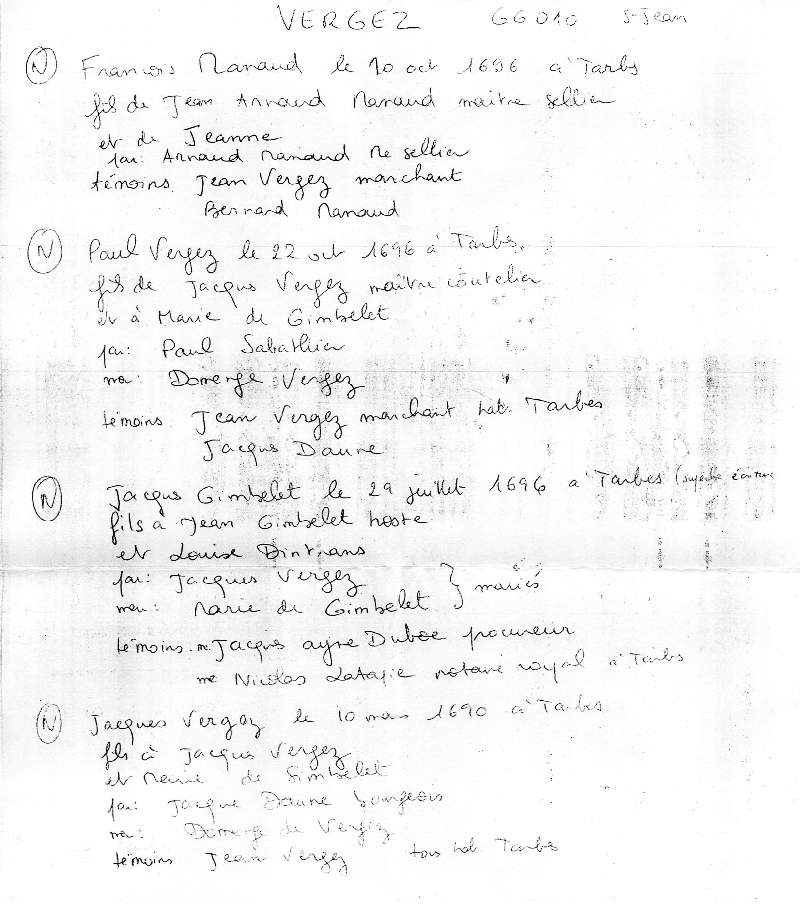 VERGEZ GG010 S-Jean
(N) François Manaud le 10 oct 1696 à Tarbes
fils de Jean Arnaud Manaud maitre sellier
et de Jeanne
par: Arnaud Manaud Me sellier
témoins. Jean Vergez marchant
Bernard Manaud
(N) Paul Vergez le 22 oct 1696 à Tarbes.
fils de Jacques Vergez maître coutelier
et à Marie de Gimbelet
par: Paul Sabathier
ma: Domerge Vergez
témoins. Jean Vergez marchant hab. Tarbes
Jacques Daune
(N) Jacques Gimbelet le 29 juillet 1696 à Tarbes (superbe écriture
fils à Jean Gimbelet hoste
et Louise Dintrans
par: Jacques Vergez
mar: Marie de Gimbelet } mariés
témoins. me Jacques ayne Duboe procureur
me Nicolas Latapie notaire royal à Tarbes
(N) Jacques Vergez le 10 mars 1690 à Tarbes
fils à Jacques Vergez
et Marie de Gimbelet
par: Jacque Daune bourgeois
ma: Domerge de Vergez
témoins Jean Vergez tous hab Tarbes